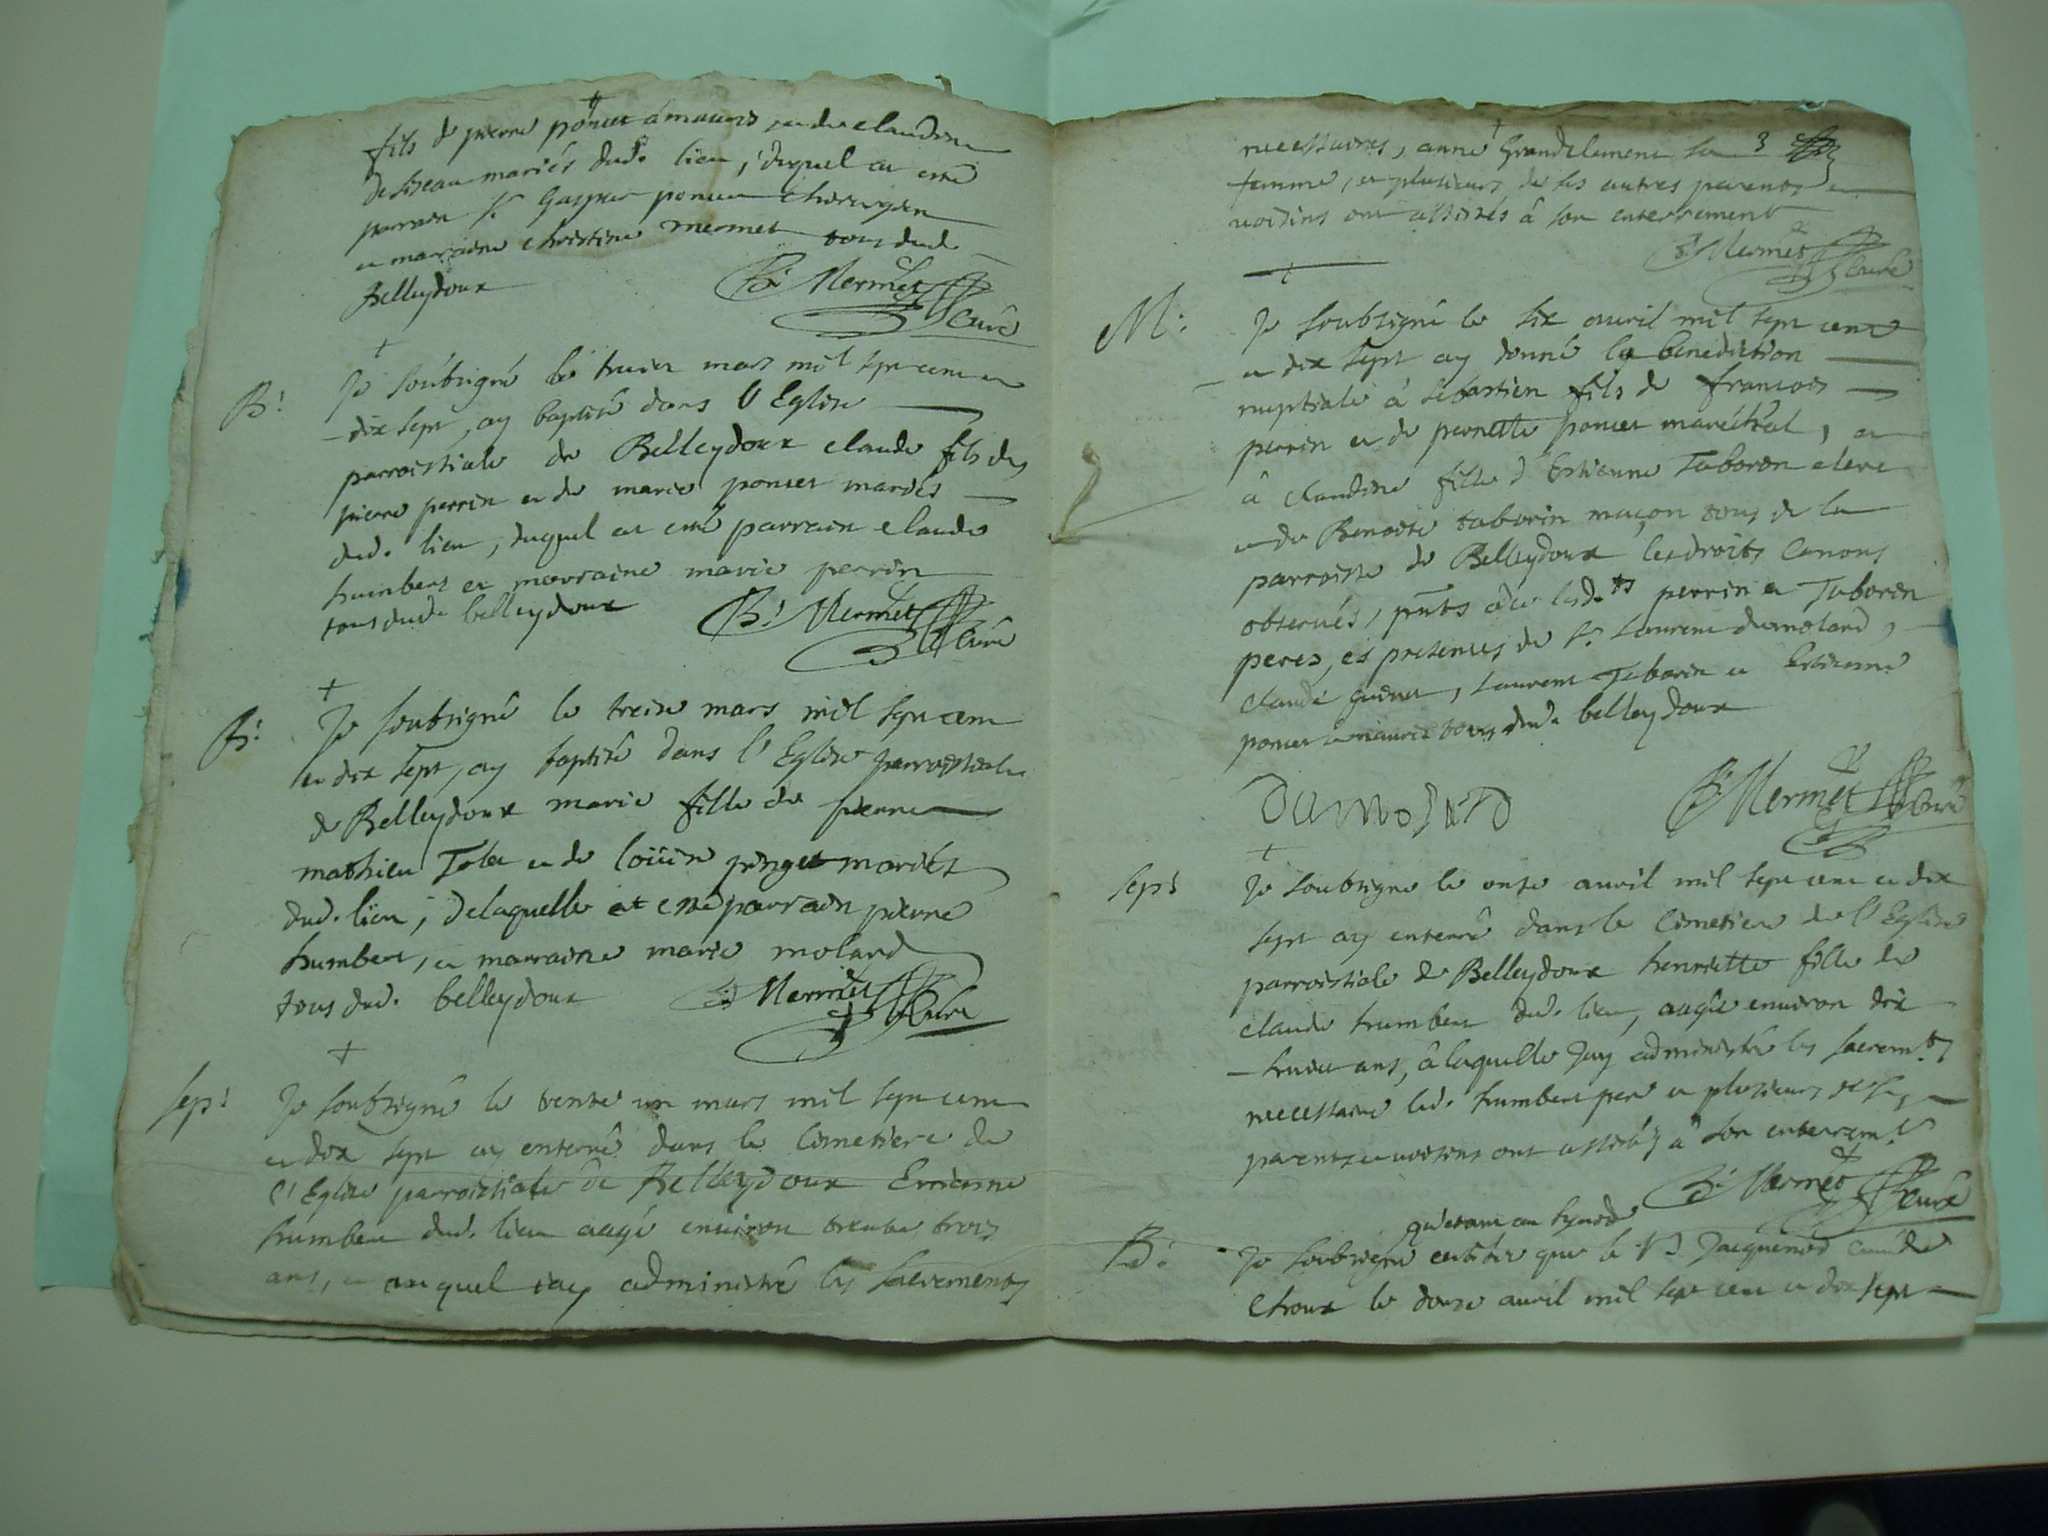 fils de pierre poncet amauris et de claudine
mariés dud. lieu, duquel at esté
parrain Sr Gaspar poncet
et marraine christine mermet tous dud.
Belleydoux
B. Mermet Curé
B.
Je soubsigné le mars mil sept cent et
dix sept, ay baptisé dans l'Eglise
parroissiale de Belleydoux claude fils de
pierre perrin et de marie poncet mariés
dud. lieu, duquel at esté parrain claude
humbert et marraine marie perrin
tous dud. belleydoux
B. Mermet Curé
B.
Je soubsigné le treize mars mil sept cent
et dix sept, ay baptisé dans l'Eglise parroissiale
de Belleydoux marie fille de pierre
mathieu et de loüise mariés
dud. lieu, delaquelle at esté parrain pierre
humbert, et marraine marie molard
tous dud. belleydoux
B. Mermet Curé
sep.
Je soubsigné le trente un mars mil sept cent
et dix sept ay enterré dans le Cimetiere de
l'Eglise parroissiale de Belleydoux Estienne
humbert dud. lieu aagé environ trente trois
ans, et auquel iay administré les sacrements
3
necessaires, anne Grandclement sa
femme, et plusieurs de ses autres parents et
voisins ont assistés â son enterrement
B. Mermet Curé
M.
Je soubsigné le six avril mil sept cent
et dix sept ay donné la benediction
nuptiale â sebastien fils de francois
perrin et de pernette poncet maréchal, et
â claudine fille d'Estienne Taborin clerc
et de Benoite taborin maçon tous de la
parroisse de Belleydoux les droits Canons
observés, pnts lesd.ts perrin et Taborin
peres, et presences de Sr Laurent dumolard,
claude , Laurent Taborin et Estienne
poncet tous dud. belleydoux
DUMOLARD
B. Mermet Curé
sep.
Je soubsigné le onze avril mil sept cent et dix
sept ay enterré dans le Cimetiere de l'Eglise
parroissiale de Belleydoux henriette fille de
claude humbert dud. lieu, aagée environ dix
huict ans, â laquelle Jay administré les sacrem.ts
necessaire led. humbert pere et plusieurs de ses
parents et voisins ont assistés â son enterrem.t
B. Mermet Curé
qu'etant au synode
B.
Je soubsigné certifie que le Sr Jacquenod curé de
choux le douze avril mil sept cent et dix sept